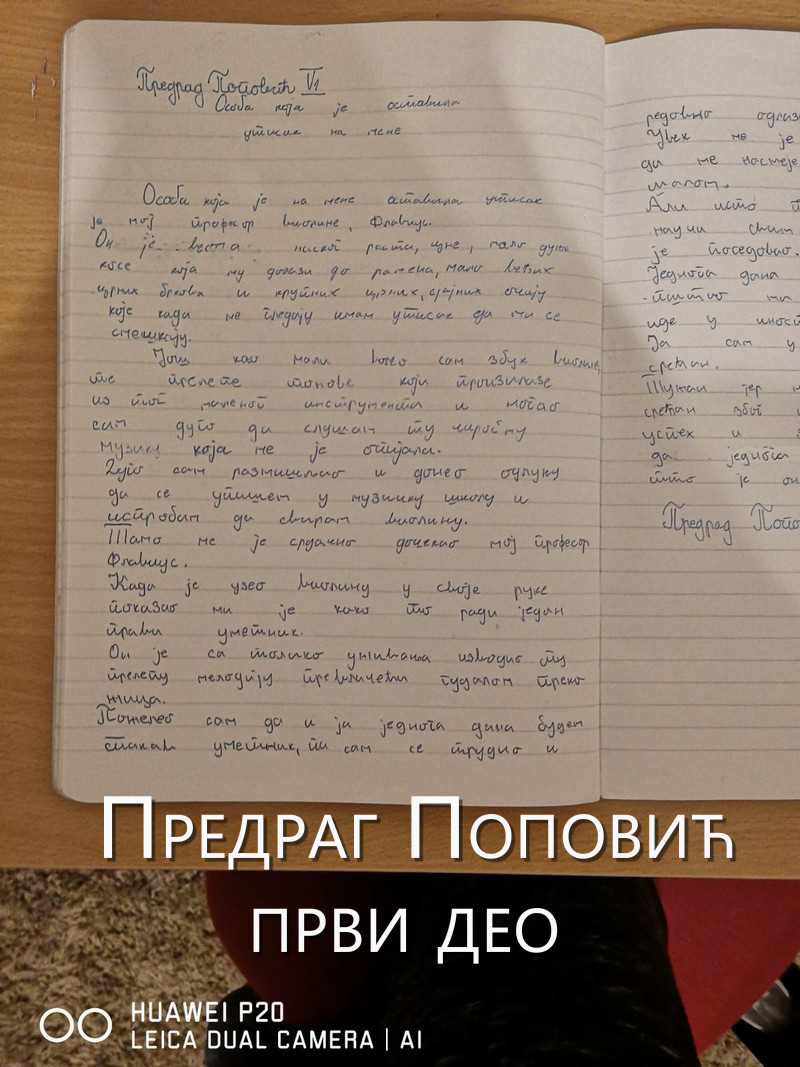 Предраг Поповић V1
Особа која је оставила
утисак на мене
Особа која је на мене оставила утисак
је мој професор виолине, Флавиус.
Он је веома ниског раста, црне, мало дуже
косе која му долази до рамена, мало већих
црних бркова и крупних црних, сјајних очију
које када ме гледају имам утисак да ми се
смешкају.
Још као мали волео сам звук виолине,
те прелепе тонове који произилазе
из тог маленог инструмента и могао
сам дуго да слушам ту чаробну
музику која ме је опијала.
Дуго сам размишљао и донео одлуку
да се упишем у музичку школу и
испробам да свирам виолину.
Тамо ме је срдачно дочекао мој професор
Флавиус.
Када је узео виолину у своје руке
показао ми је како то ради један
прави уметник.
Он је са толико уживања изводио ту
прелепу мелодију превлачећи гудалом преко
жица.
Пожелео сам да и ја једнога дана будем
такав уметник, па сам се трудио и
редовно
Увек ме је
да ме
малом.
Али исто
научи свим
је поседовао.
Једнога дана
ми
иде у
Ја сам у
срећан.
Тужан јер
срећан због
успех и
да једнога
што је он
Предраг
Предраг Поповић
први део
HUAWEI P20
LEICA DUAL CAMERA | AI